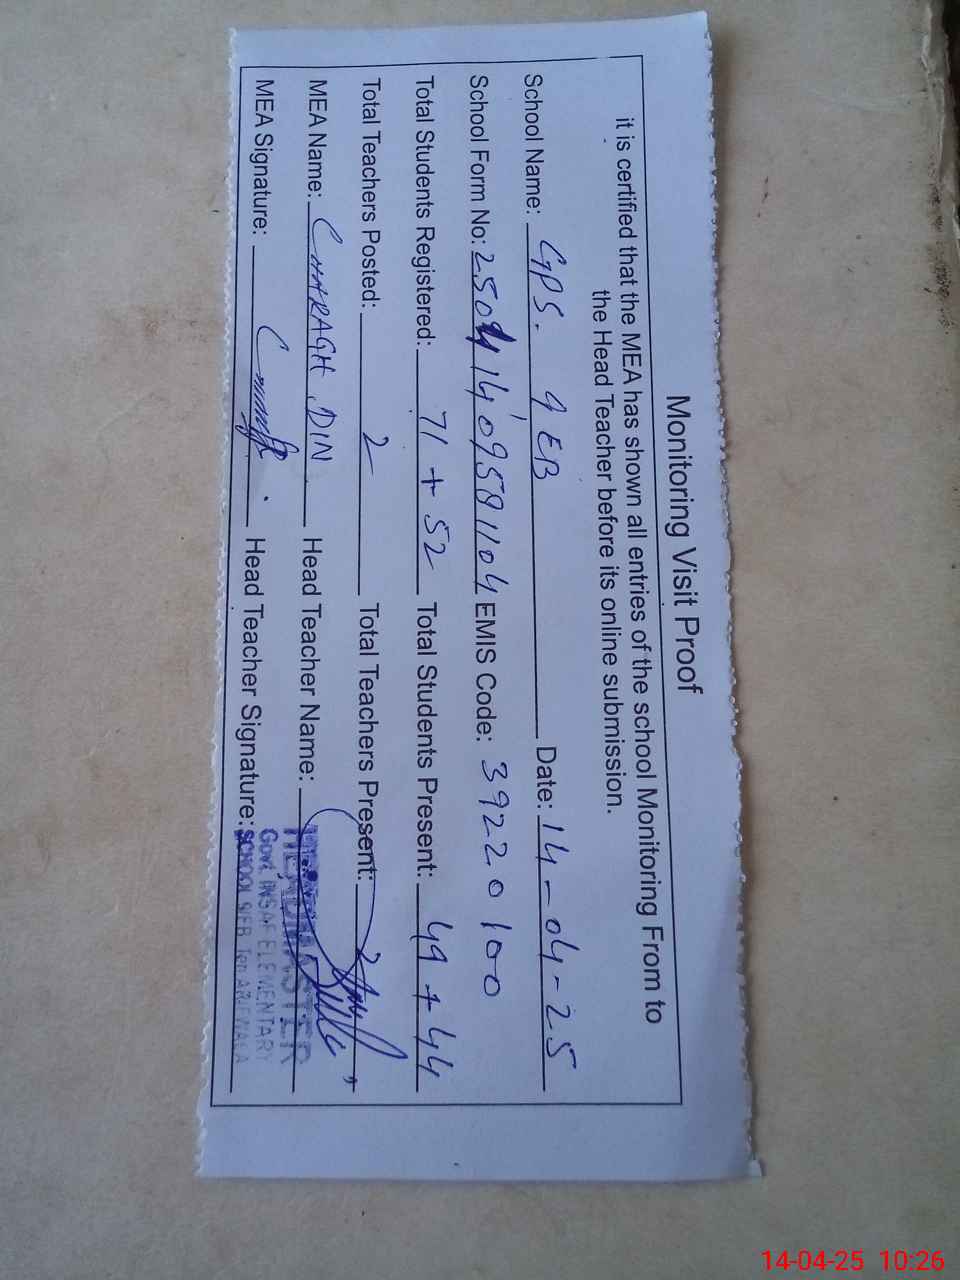 Monitoring Visit Proof
it is certified that the MEA has shown all entries of the school Monitoring From to
the Head Teacher before its online submission.
School Name: GPS. 9 EB Date: 14-04-25
School Form No: 25041409581104 EMIS Code: 39220100
Total Students Registered: 71 + 52 Total Students Present: 49 + 44
Total Teachers Posted: 2 Total Teachers Present: 2
MEA Name: CHARAGH DIN Head Teacher Name:
MEA Signature: Head Teacher Signature:
HEADMASTER
Govt. INSAF ELEMENTARY
SCHOOL 9/EB Teh ARIFWALA
14-04-25 10:26